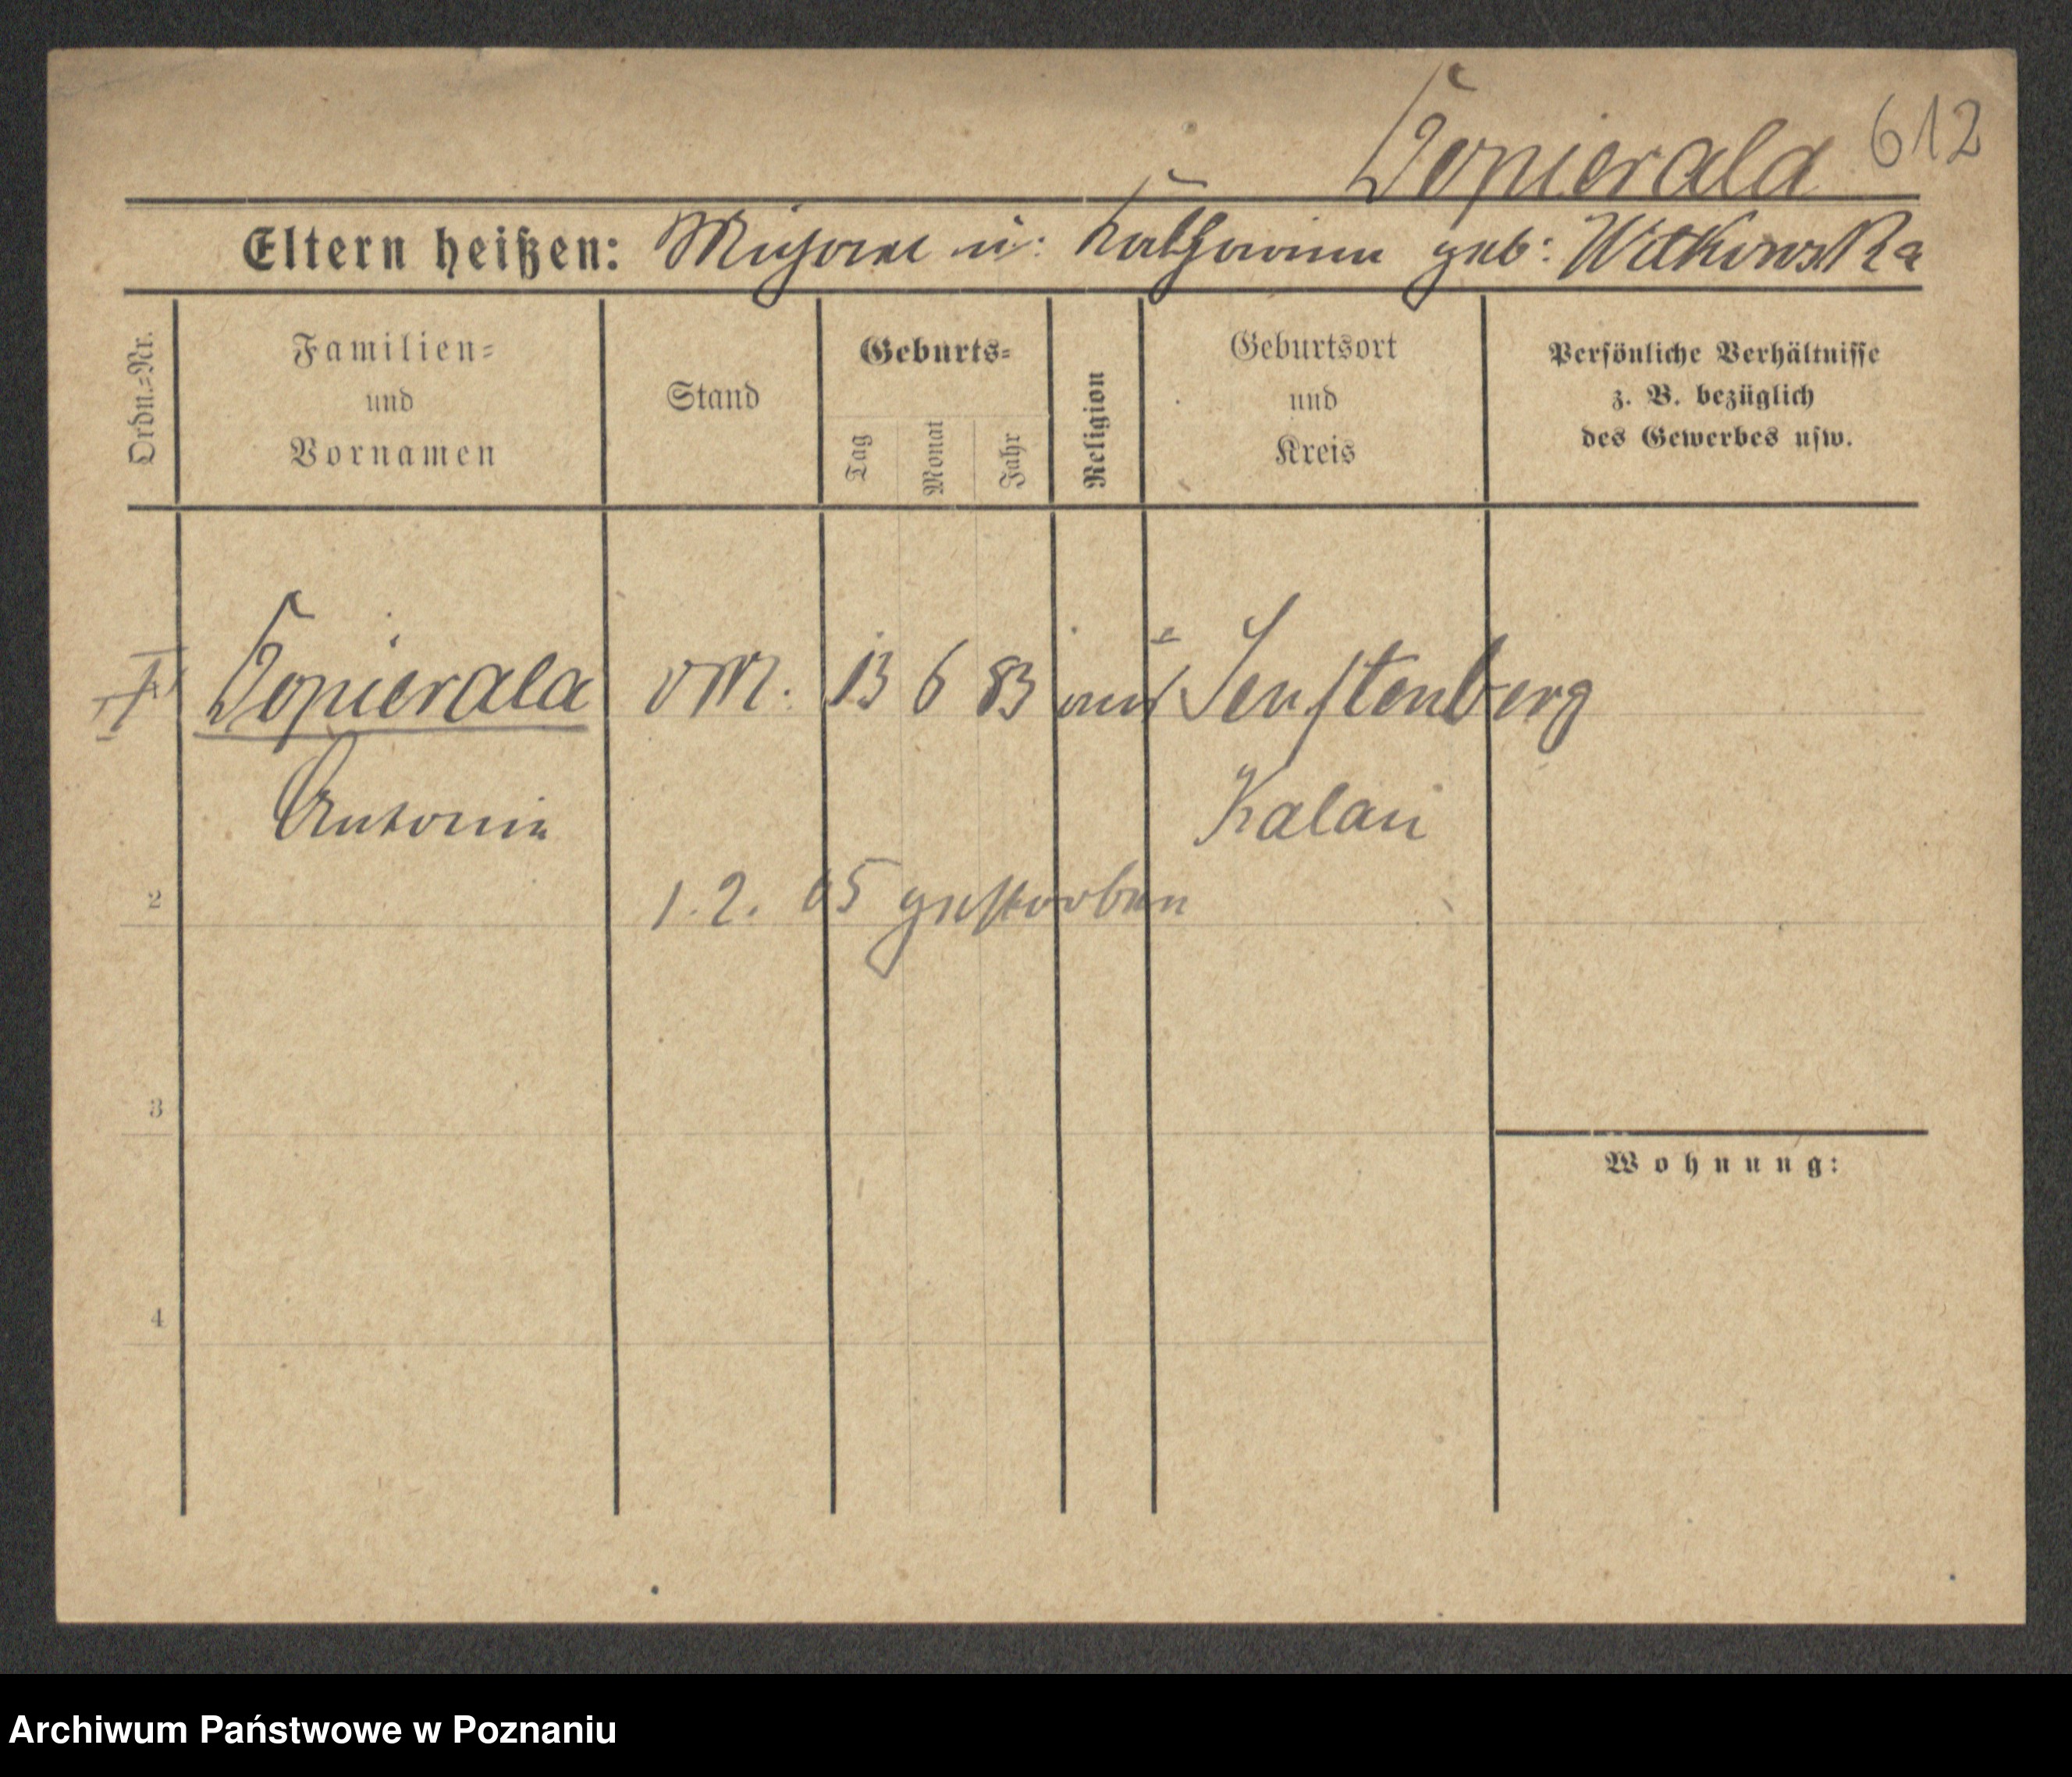 Dopierala 612
Eltern heißen: Michael u: Katharina geb: Witkowska
Ordn.=Nr.
Familien=
und
Vornamen
Stand
Geburts=
Tag
Monat
Jahr
Religion
Geburtsort
und
Kreis
Persönliche Verhältnisse
z. B. bezüglich
des Gewerbes usw.
Dopierala 13 6 83 Senftenberg
Antonie Kalau
2 1. 2. 05 gestorben
3
Wohnung:
4
Archiwum Państwowe w Poznaniu